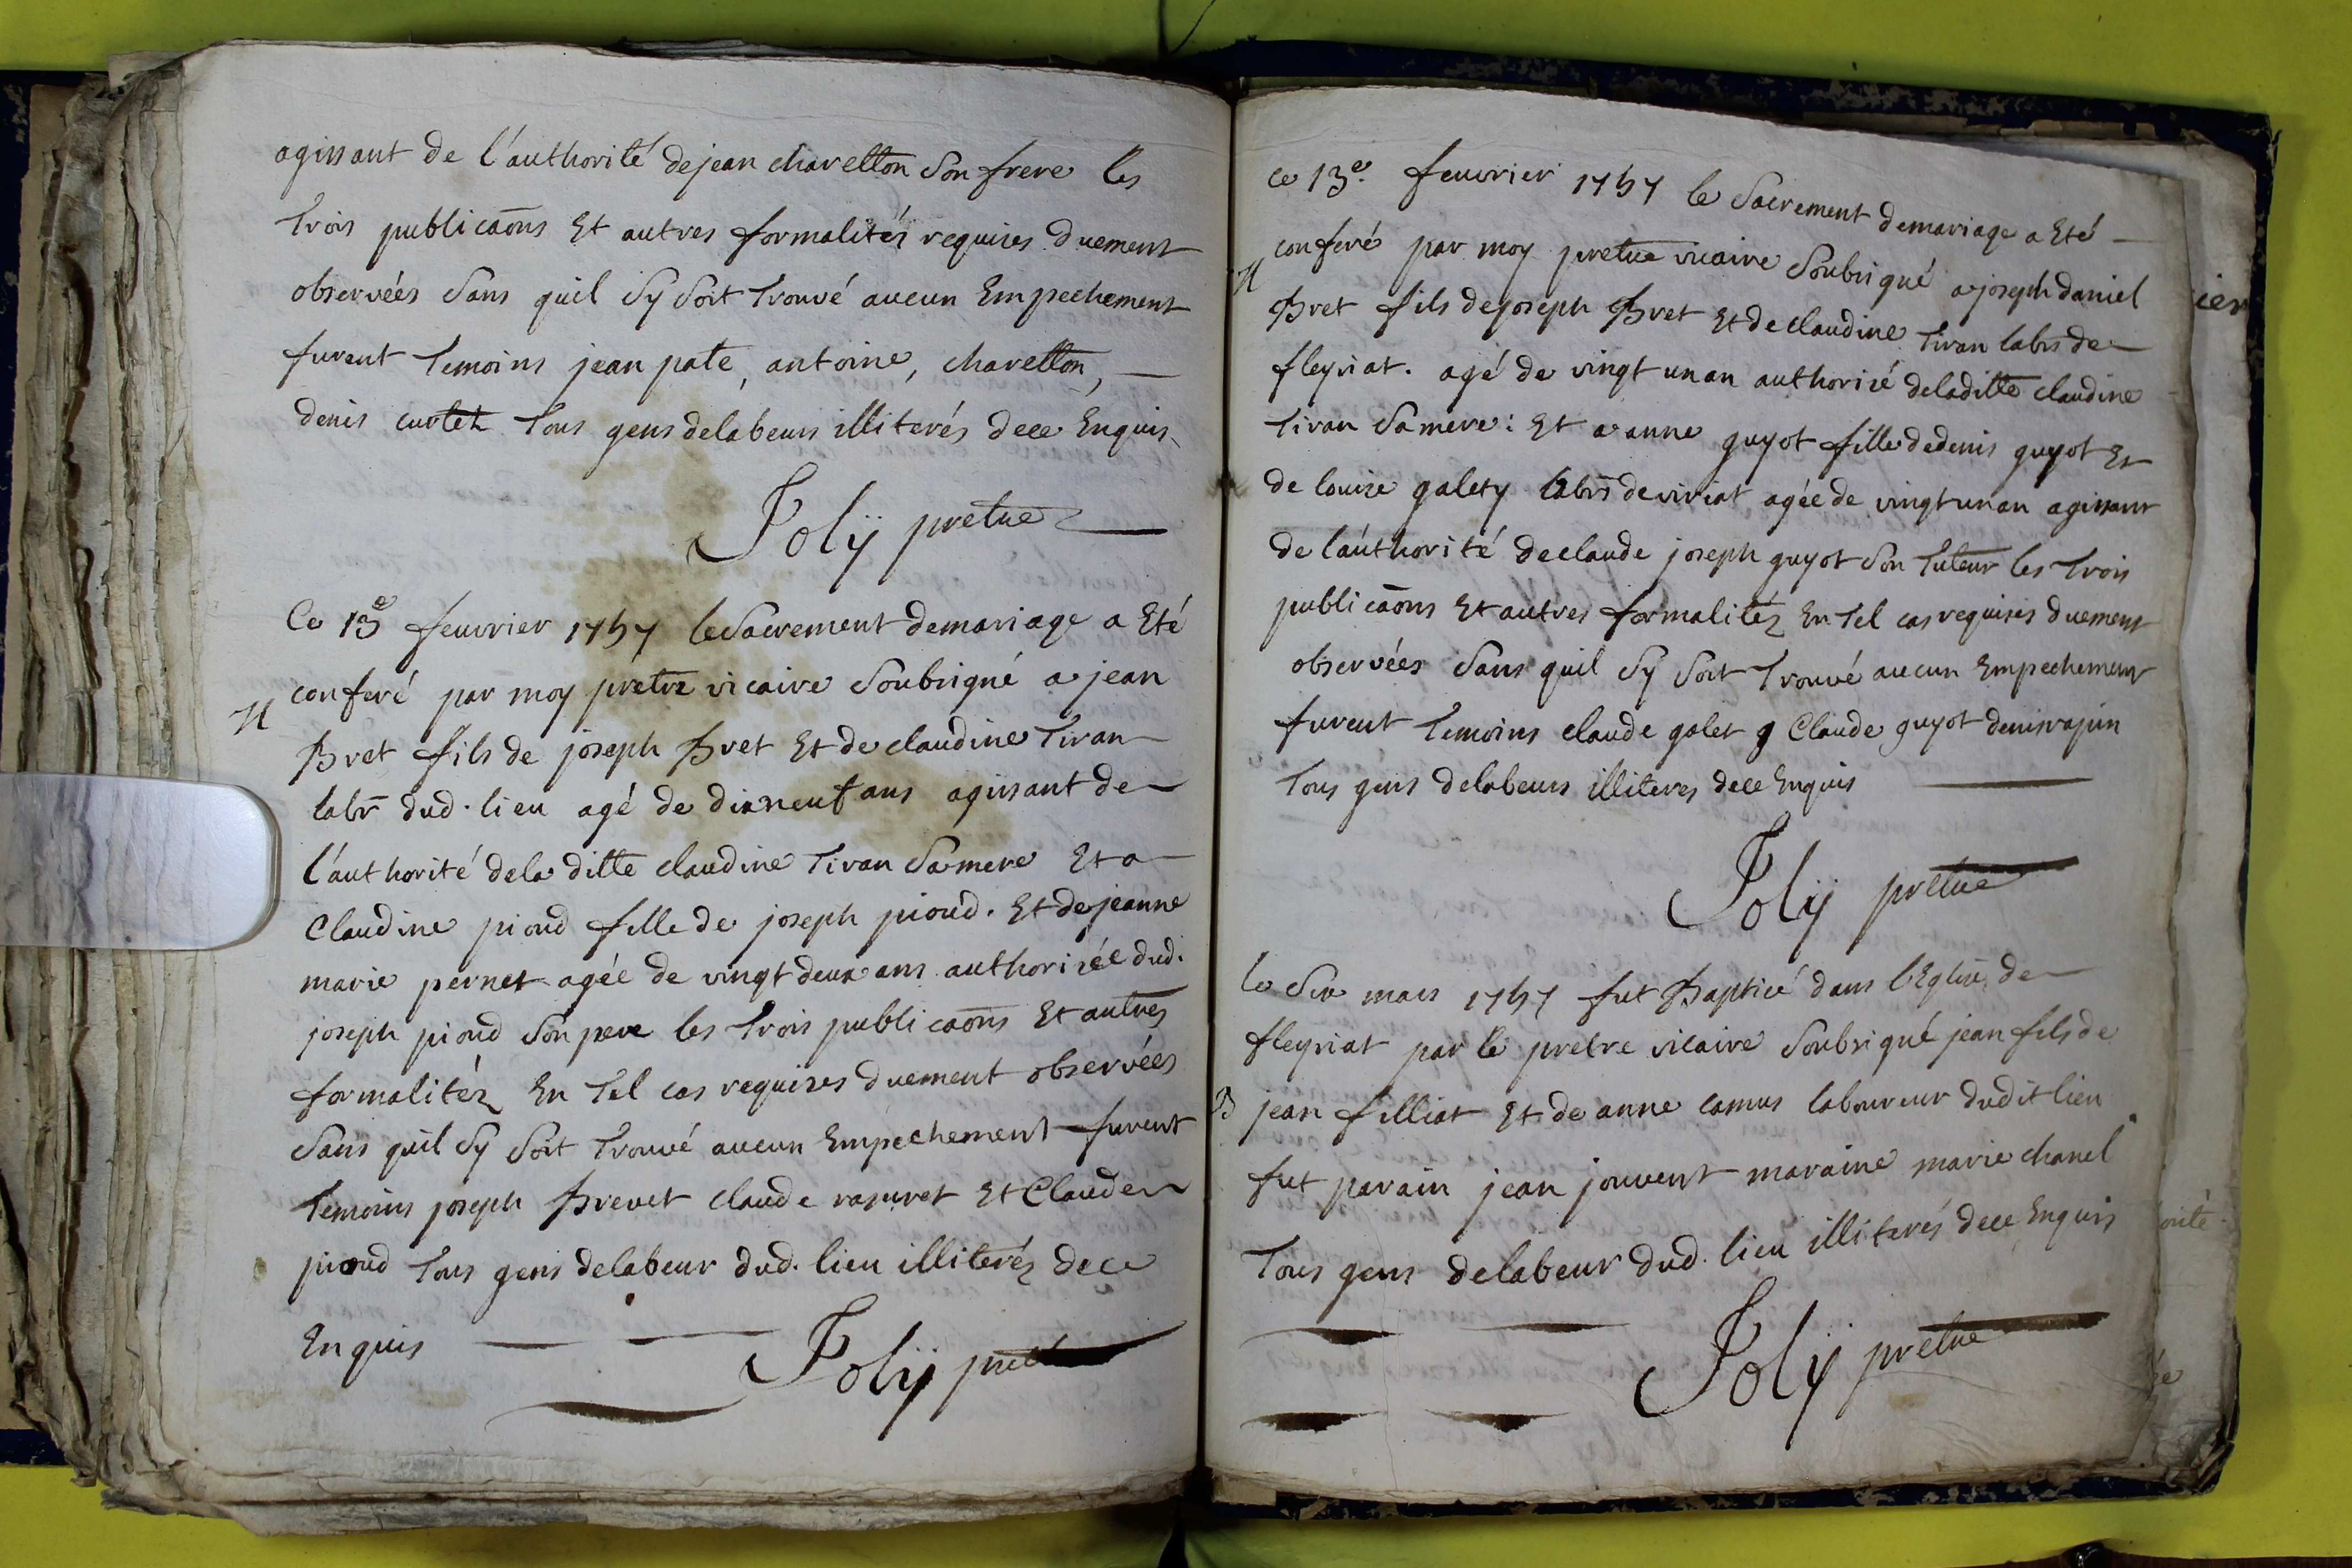 agissant de l'authorité de jean charellon son frere les
trois publicaons Et autres formalités requises duement
observées sans quil sy soit trouvé aucun Empechement
furent temoins jean pate, antoine, charellon,
denis curtet tous gens de labeurs illiterés de ce Enquis
Joly pretre
Ce 13e feuvrier 1757 le sacrement de mariage a Eté
conferé par moy prétre vicaire soubsigné a jean
M
Bret fils de joseph Bret Et de claudine tiran
labr dud. lieu agé de dixneuf ans agissant de
l'authorité de la ditte claudine tiran sa mere Et a
Claudine pioud fille de joseph pioud. Et de jeanne
marie pernet agée de vingt deux ans authorisée dud.
joseph pioud son pere les trois publicaons Et autres
formalitéz En tel cas requises duement observées
sans quil sy soit trouvé aucun Empechement furent
temoins joseph Brevet claude razuret Et Claude
pioud tous gens de labeur dud. lieu illiteréz de ce
Enquis
Joly pretre
ce 13e. feuvrier 1757 le sacrement de mariage a Eté
conferé par moy pretre vicaire soubsigné a joseph daniel
M
Bret fils de joseph Bret Et de claudine tiran labrs de
fleyriat. agé de vingt un an authorisé de la ditte claudine
tiran sa mere: Et a anne guyot fille de denis guyot Et
de louise galety labrs de viriat agée de vingt un an agissant
de l'authorité de claude joseph guyot son tuteur les trois
publicaons Et autres formalitéz En tel cas requises duement
observées sans quil sy soit trouvé aucun Empechement
furent temoins claude galet Claude guyot denis
tous gens de labeurs illiteres de ce Enquis
Joly pretre
le six mars 1757 fut Baptisé dans l'Eglise de
fleyriat par le pretre vicaire soubsigné jean fils de
B
jean filliat Et de anne camus laboureur dudit lieu
fut parain jean jouvent maraine marie chanel
tous gens de labeur dud. lieu illiterés de ce Enquis
Joly pretre